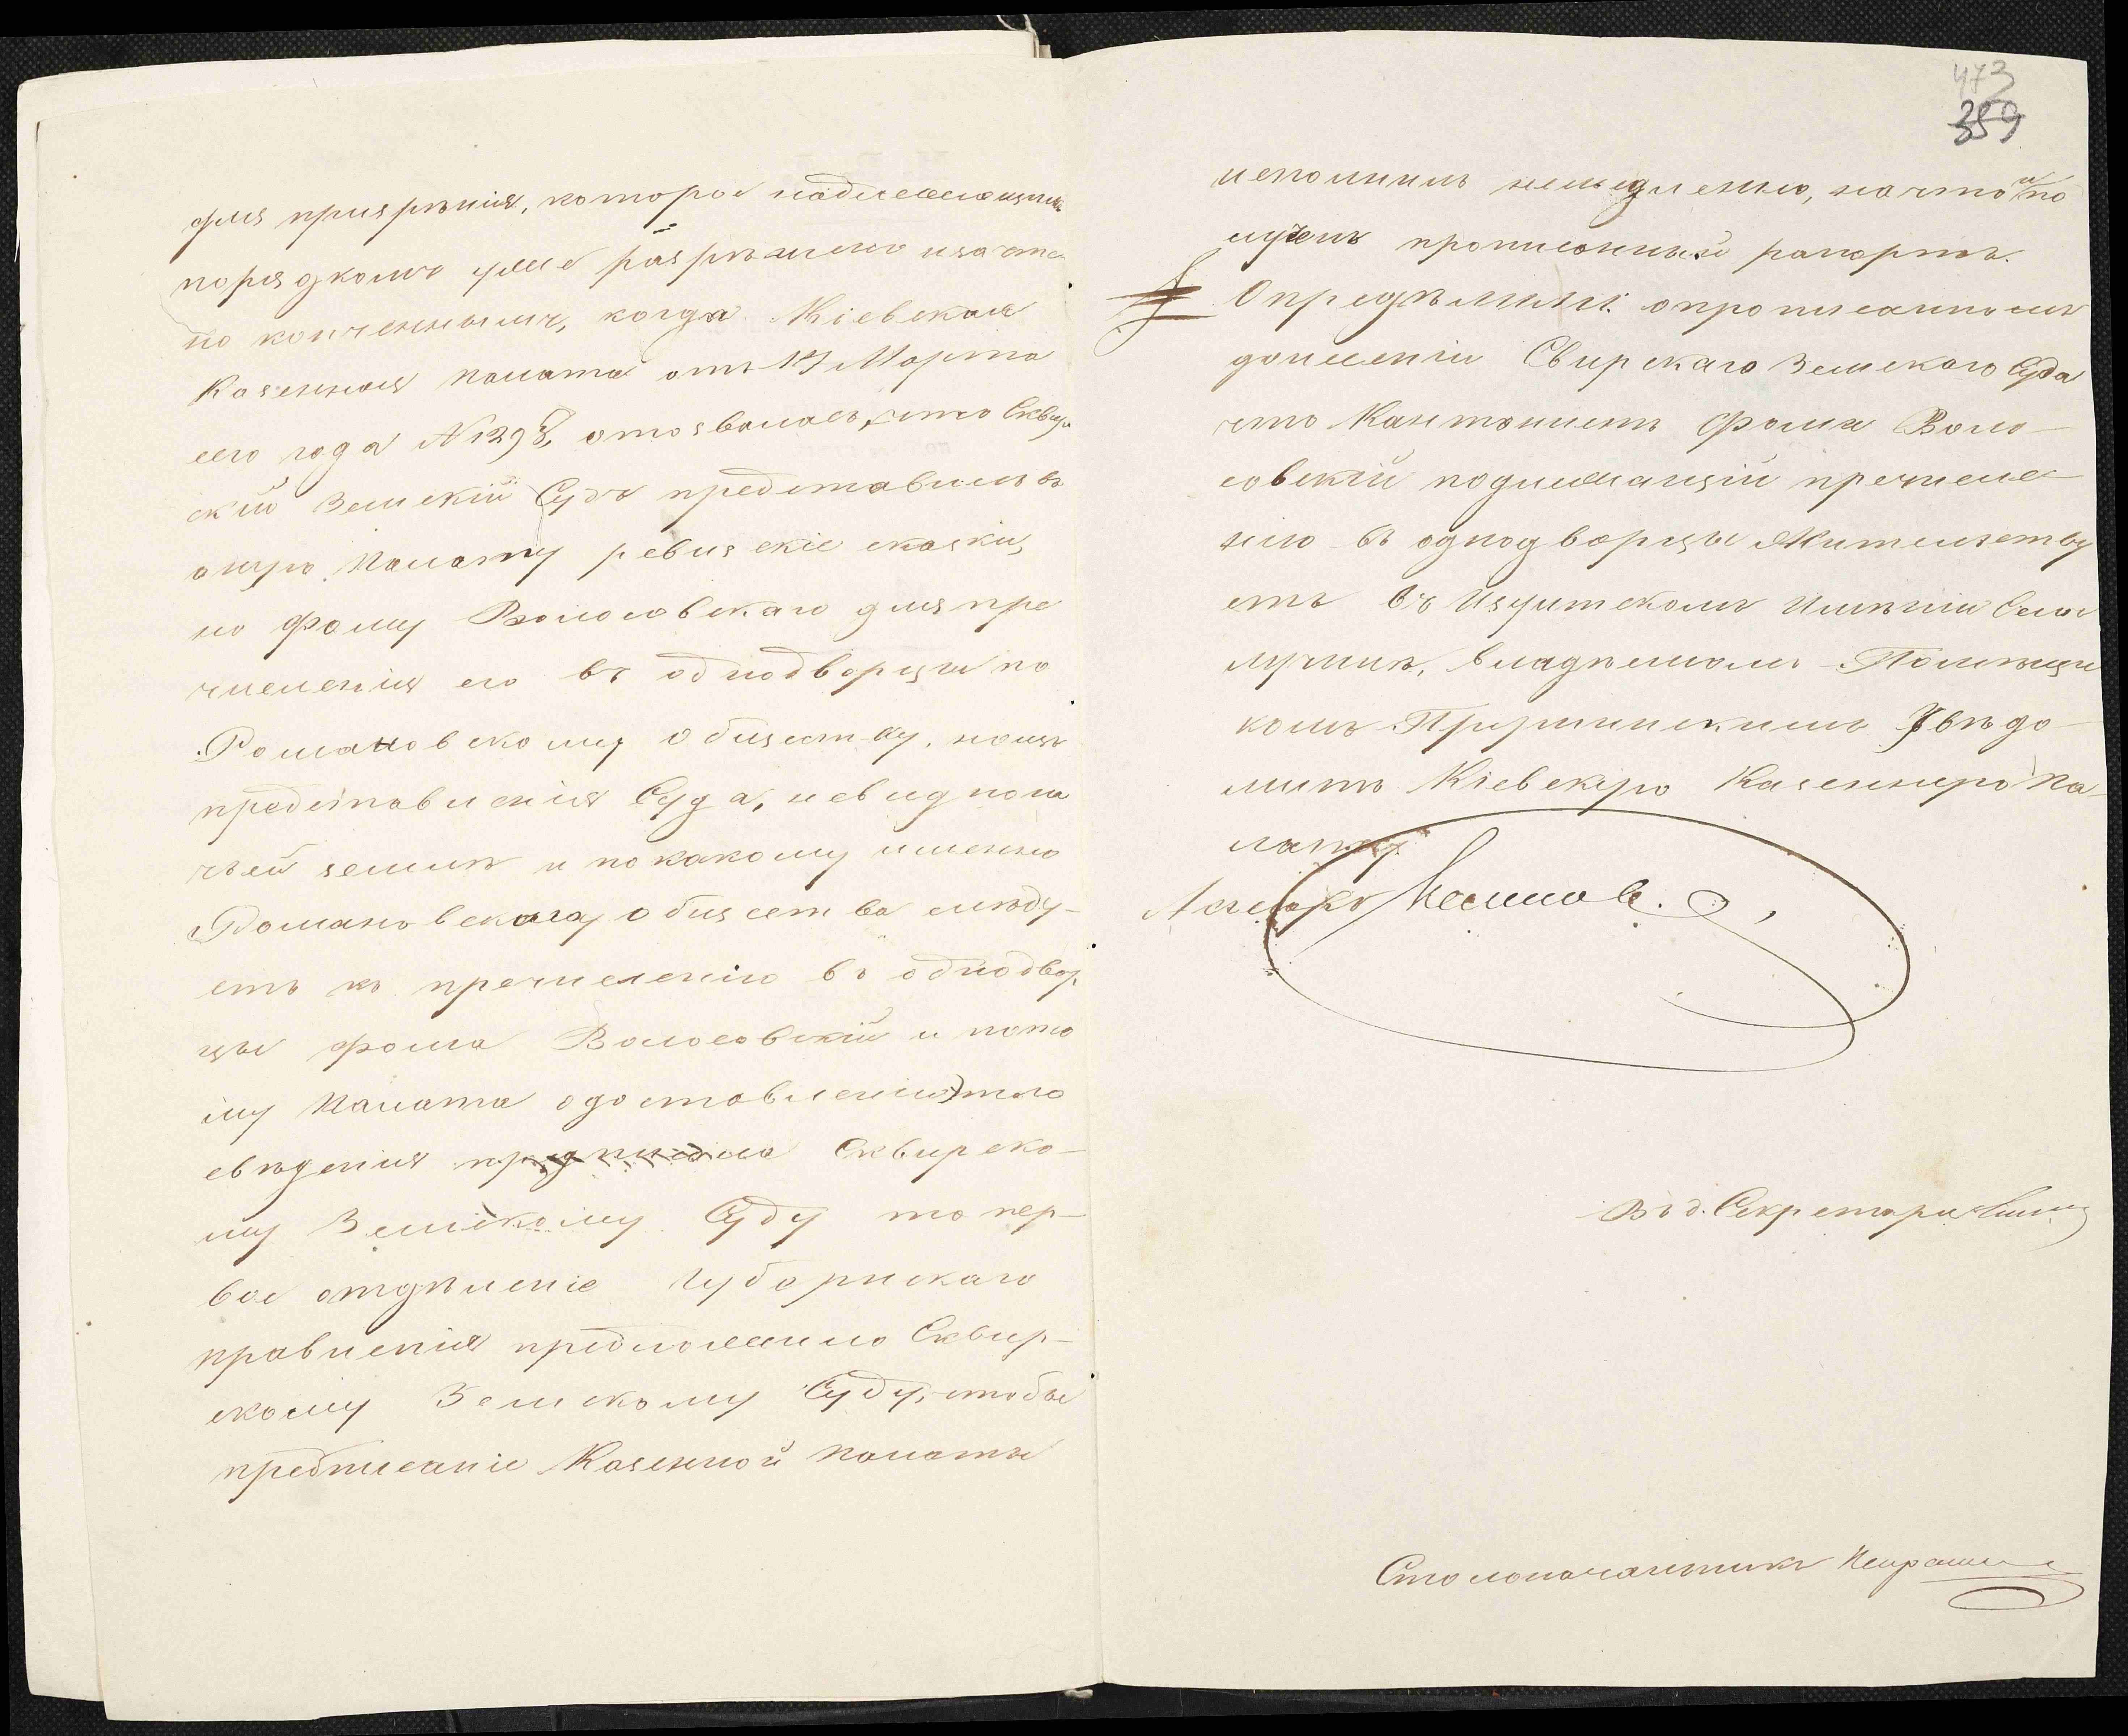 для призрѣнія, которое надлежащимъ
порядкомъ уже разрѣшено и зачте
но конченнымъ, когда Кіевская
Казенная Палата отъ 17 Марта
сего года N 1298, отозвалась, что Сквир
скій Земскій Судъ представилъ въ
оную Палату ревизскіе сказки,
но Фому Волосовскаго для пре
численія его въ однодворцы по
Романовскому Обществу, но изъ
представленія Суда, невидно на
чьей землѣ и по какому именно
Романовскага Общества слѣду-
етъ къ пречисленію въ однодвор
цы Фома Волосовскій и пото
му Палата о доставленіи того
свѣденія предписала Сквирско-
му Земскому Суду то пер-
вое отдѣленіе Губернскаго
правленія предложило Сквир-
скому Земскому Суду, чтобы
предписаніе Казенной Палаты
473
359
исполнилъ немедленно, на что и по
лученъ прописанный рапортъ.
Опредѣлили: о прописанномъ
донесеніи Свирскаго Земскаго Суда
что Кантонистъ Фома Воло-
совскій подлежащій пречисле-
нію въ однодворцы Жительству
етъ въ Изуитскомъ Имѣніи Сели
лучинѣ, владѣемомъ Помѣщи
комъ Пружинскимъ Увѣдо-
мить Кіевскую Казенную Па-
лату.
Асесоръ
Въ д. Секретаря
Столоначальникъ